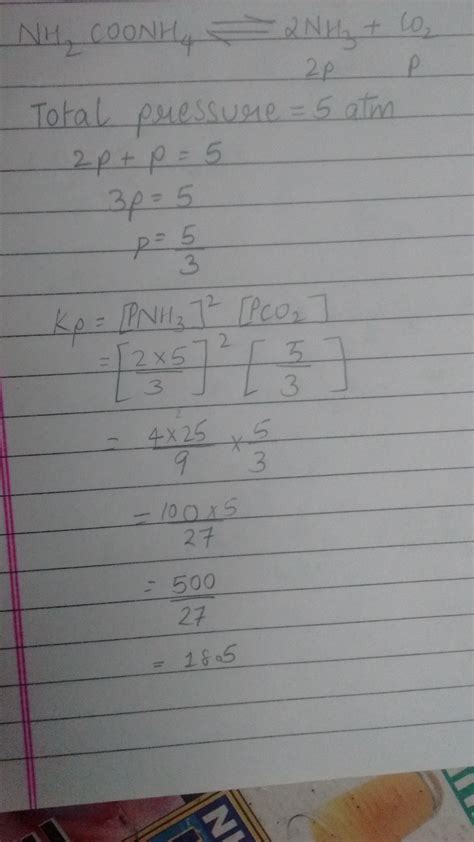 NH2 COONH4 ⇌ 2NH3 + CO2
2p p
Total pressure = 5 atm
2p + p = 5
3p = 5
p = 5/3
Kp = [PNH3]² [PCO2]
= [2×5/3]² [5/3]
= 4×25/9 × 5/3
= 100×5/27
= 500/27
= 18.5